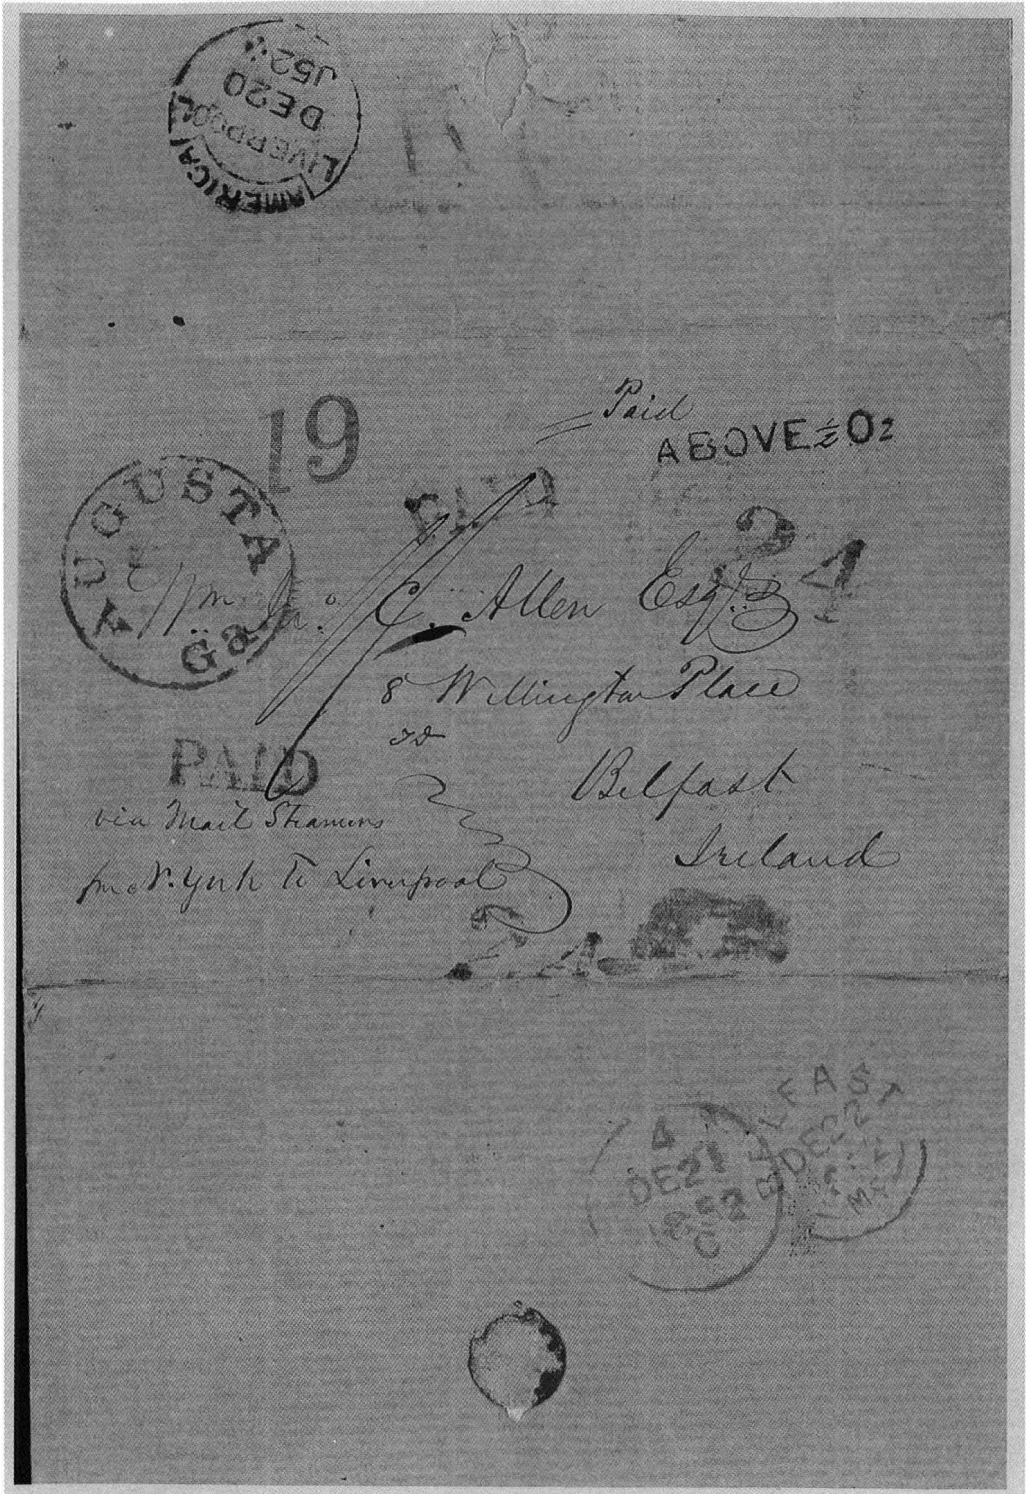 AMERICA
LIVERPOOL
DE20
J52
19
Paid
ABOVE ½ Oz
PAID
24
AUGUSTA
Ga
C. Allen Esqr.
8 Wellington Place
Belfast
Ireland
PAID
via Mail Steamers
from N. York to Liverpool
24
A
DE21
1852
C
BELFAST
DE22